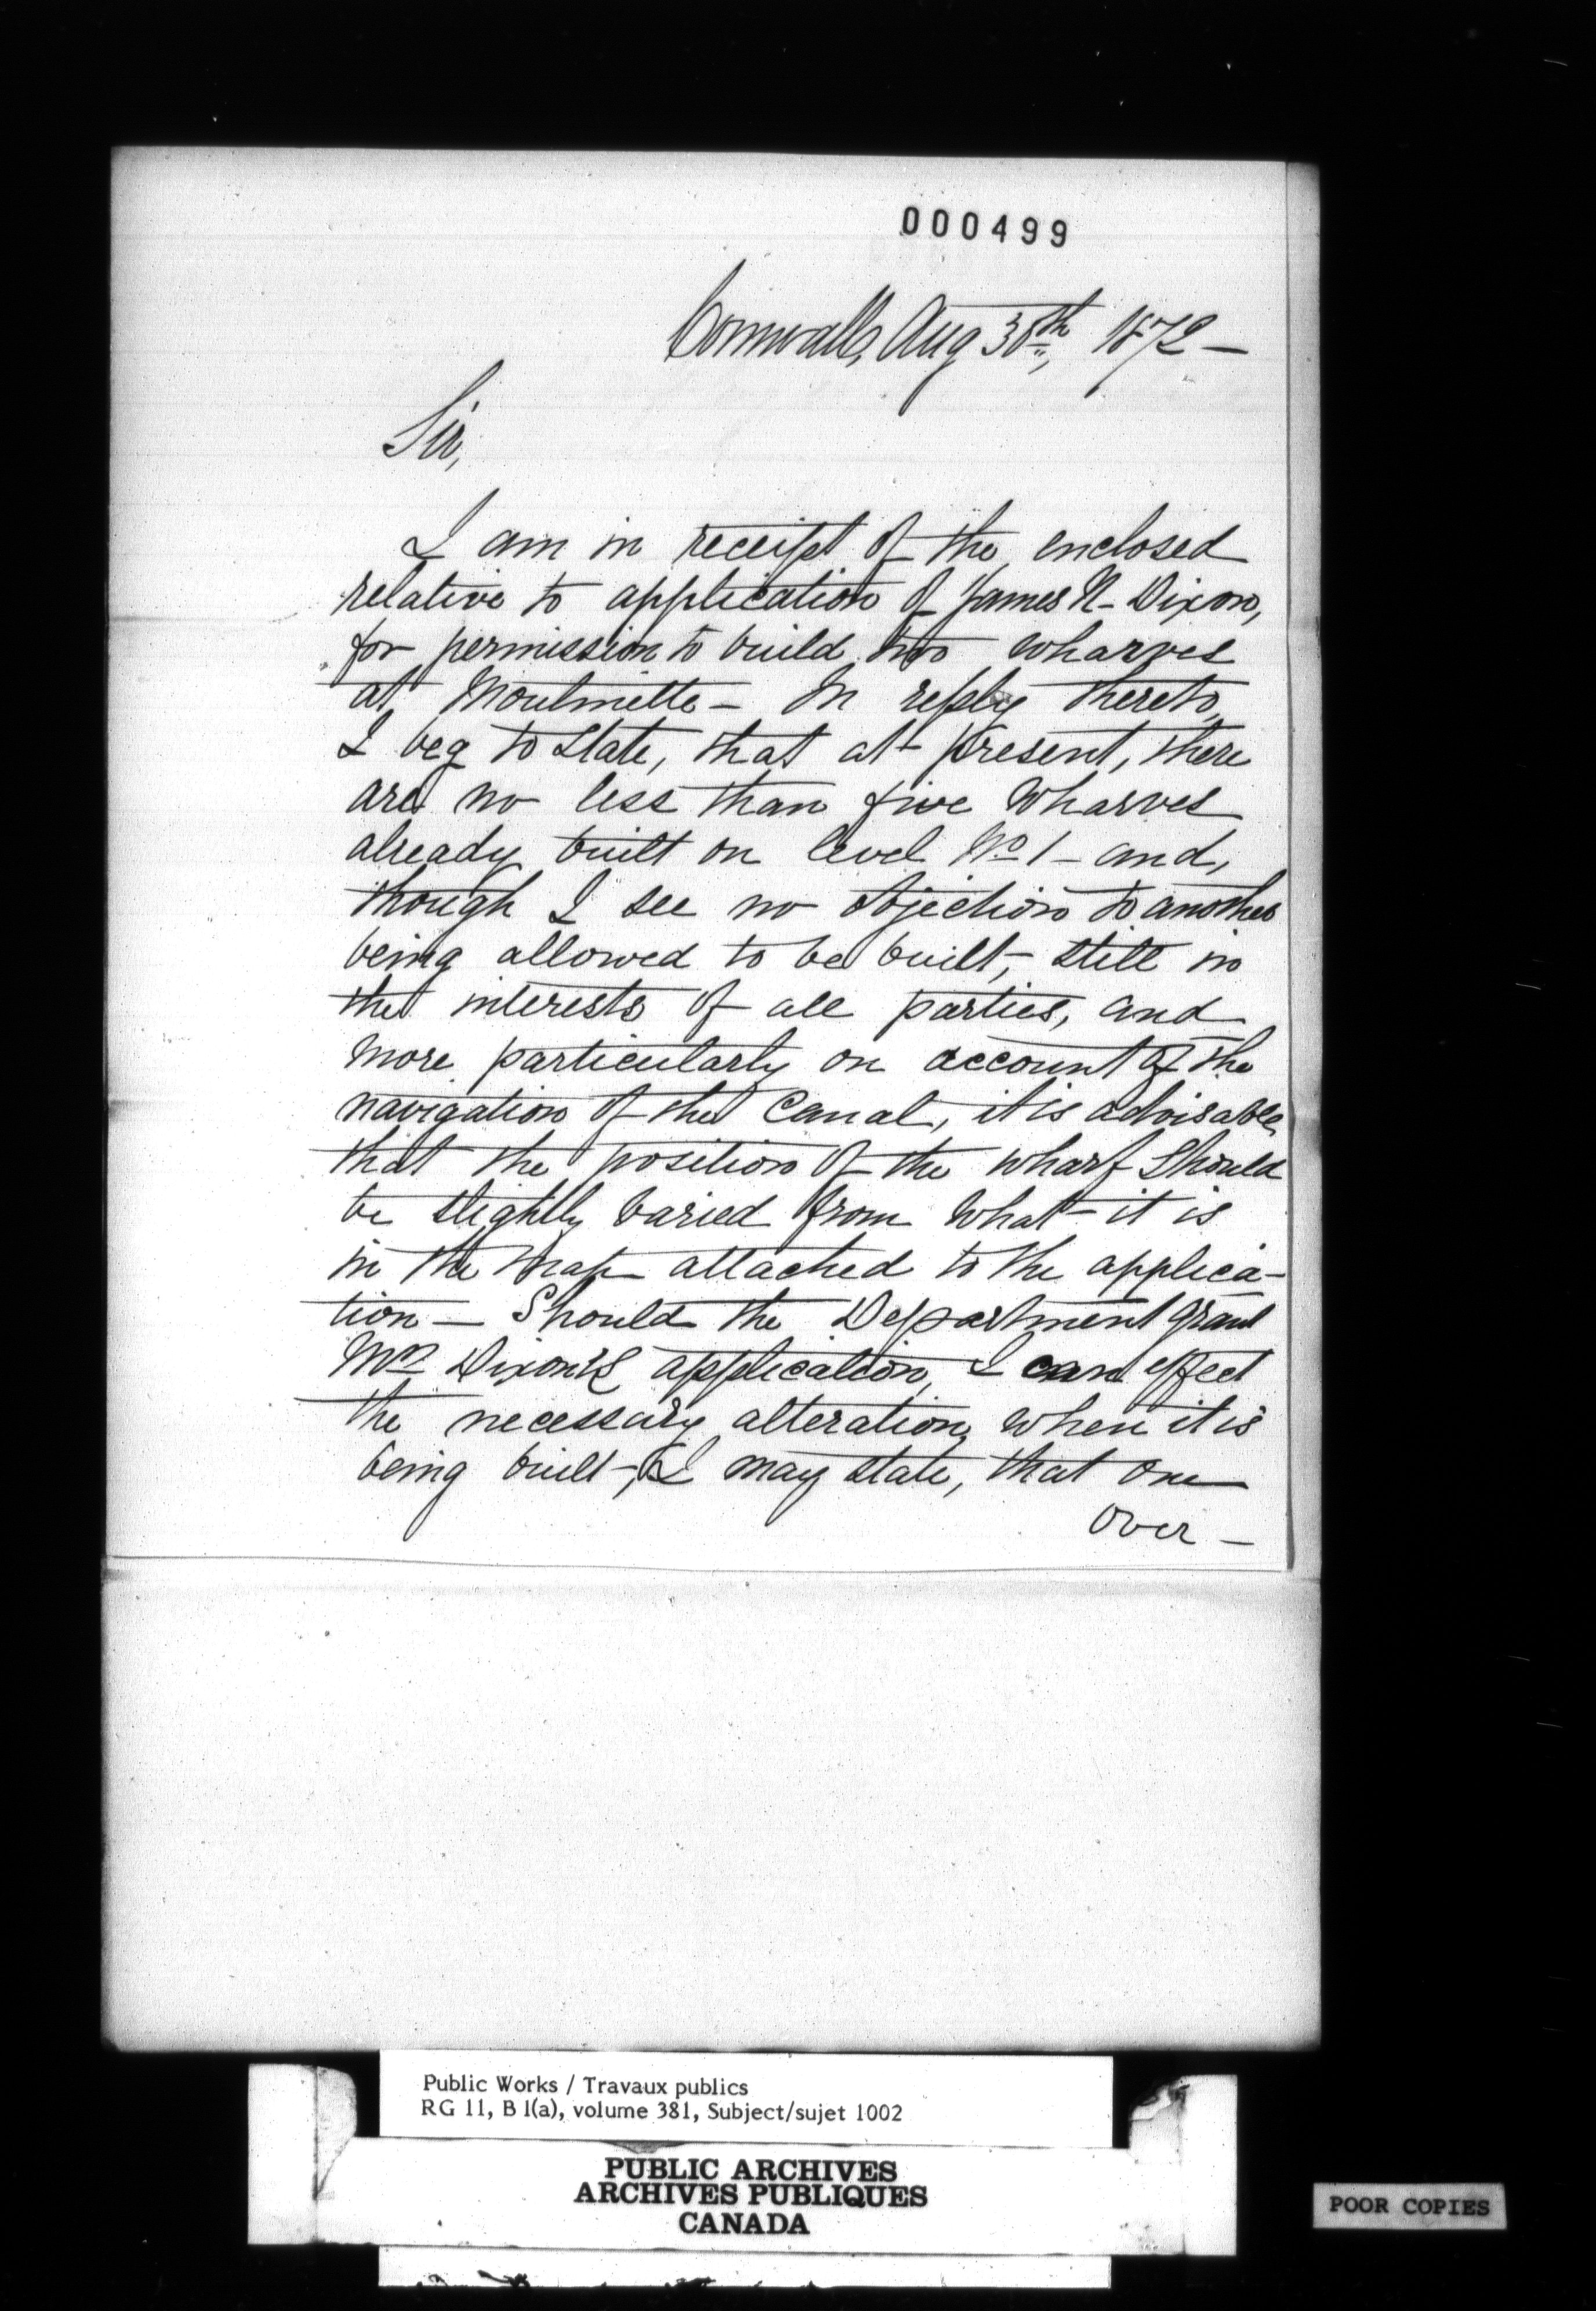 000499
Cornwall, Aug 30th, 1872 —
Sir,
I am in receipt of the enclosed
relative to application of James N- Dixon,
for permission to build two wharves
at Moulinette – In reply thereto,
I beg to state, that at present, there
are no less than five wharves
already built on level No 1 – and,
though I see no objection to another
being allowed to be built, still in
the interests of all parties, and
more particularly on account of the
navigation of the Canal, it is advisable,
that the position of the wharf should
be slightly varied from what it is
in the map attached to the applica-
tion — Should the Department grant
Mr Dixon's application, I can effect
the necessary alteration, when it is
being built –, I may state, that one
Over —
Public Works / Travaux publics
RG 11, B 1(a), volume 381, Subject/sujet 1002
PUBLIC ARCHIVES
ARCHIVES PUBLIQUES
CANADA
POOR COPIES